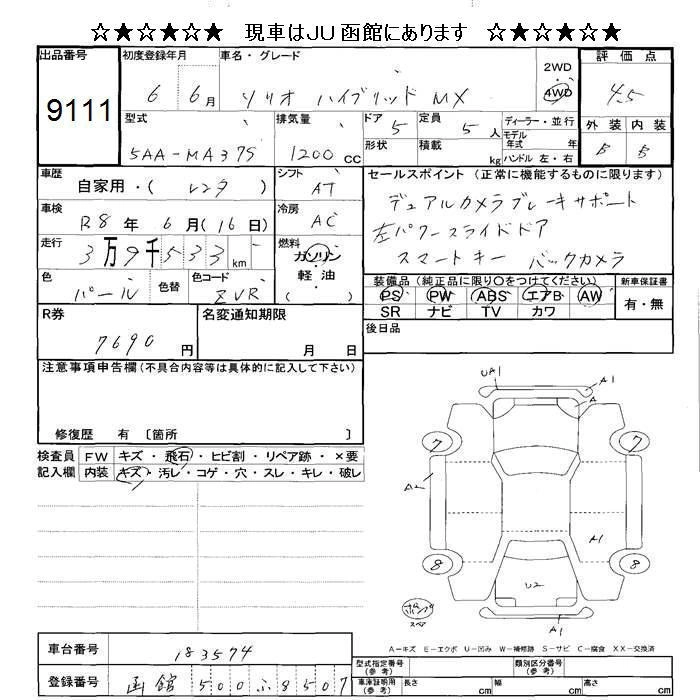 ☆★☆★☆★ 現車はJU函館にあります ☆★☆★☆★
出品番号 初度登録年月 車名・グレード 2WD 評価点
9111 6 6月 ソリオ ハイブリッド MX 4WD 4.5
型式 排気量 ドア 5 定員 5人 ディーラー・並行 外装 内装
5AA-MA37S 1200cc 形状 積載 kg モデル年式 年 ハンドル 左・右 B B
車歴 自家用・(レンタ) シフト AT セールスポイント(正常に機能するものに限ります)
車検 R8年6月(16日) 冷房 AC デュアルカメラブレーキサポート
走行 3万9千533km 燃料 ガソリン 軽油 ( ) 左パワースライドドア
スマートキー バックカメラ
色 パール 色替 色コード ZVR
装備品(純正品に限り○をつけてください) 新車保証書
PS PW ABS エアB AW 有・無
SR ナビ TV カワ
R券 7690円 名変通知期限 月 日 後日品
注意事項申告欄(不具合内容等は具体的に記入して下さい)
修復歴 有 〔箇所 〕
検査員 FW キズ・飛石・ヒビ割・リペア跡・×要
記入欄 内装 キズ・汚レ・コゲ・穴・スレ・キレ・破レ
UA1 A1
A
7 7
A2
A1
8 8
U2
ポンプ
スペア
A1
A-キズ E-エクボ U-凹み W-補修跡 S-サビ C-腐食 XX-交換済
車台番号 183574 型式指定番号(参考) 類別区分番号(参考)
登録番号 函館 500 ふ 8507 車庫証明用(参考) 長さ cm 幅 cm 高さ cm